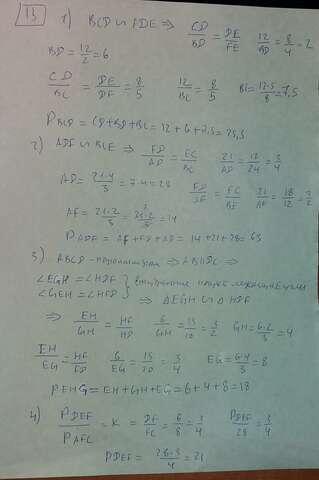 13
1) BCD ∽ ADE ⇒ CD/BD = DE/FE 12/BD = 8/4 = 2
BD = 12/2 = 6
CD/BC = DE/DF = 8/5 12/BC = 8/5 BC = 12·5/8 = 7,5
P BCD = CD + BD + BC = 12 + 6 + 7,5 = 25,5
2) ADF ∽ BCE ⇒ FD/AD = EC/BC 21/AD = 18/24 = 3/4
AD = 21·4/3 = 7·4 = 28 FD/AF = EC/BE 21/AF = 18/12 = 3/2
AF = 21·2/3 = 14
P ADF = AF + FD + AD = 14 + 21 + 28 = 63
3) ABCD - параллелограмм ⇒ AB||DC ⇒
∠EGH = ∠HDF } внутренние накрест лежащие углы
∠GEH = ∠HFD ⇒ ΔEGH ∽ ΔHDF
⇒ EH/GH = HF/HD 6/GH = 15/10 = 3/2 GH = 6·2/3 = 4
EH/EG = HF/FD 6/EG = 15/20 = 3/4 EG = 6·4/3 = 8
P EHG = EH + GH + EG = 6 + 4 + 8 = 18
4) P DEF/P AFC = K = DF/FC = 6/8 = 3/4 P DEF/28 = 3/4
P DEF = 28·3/4 = 21